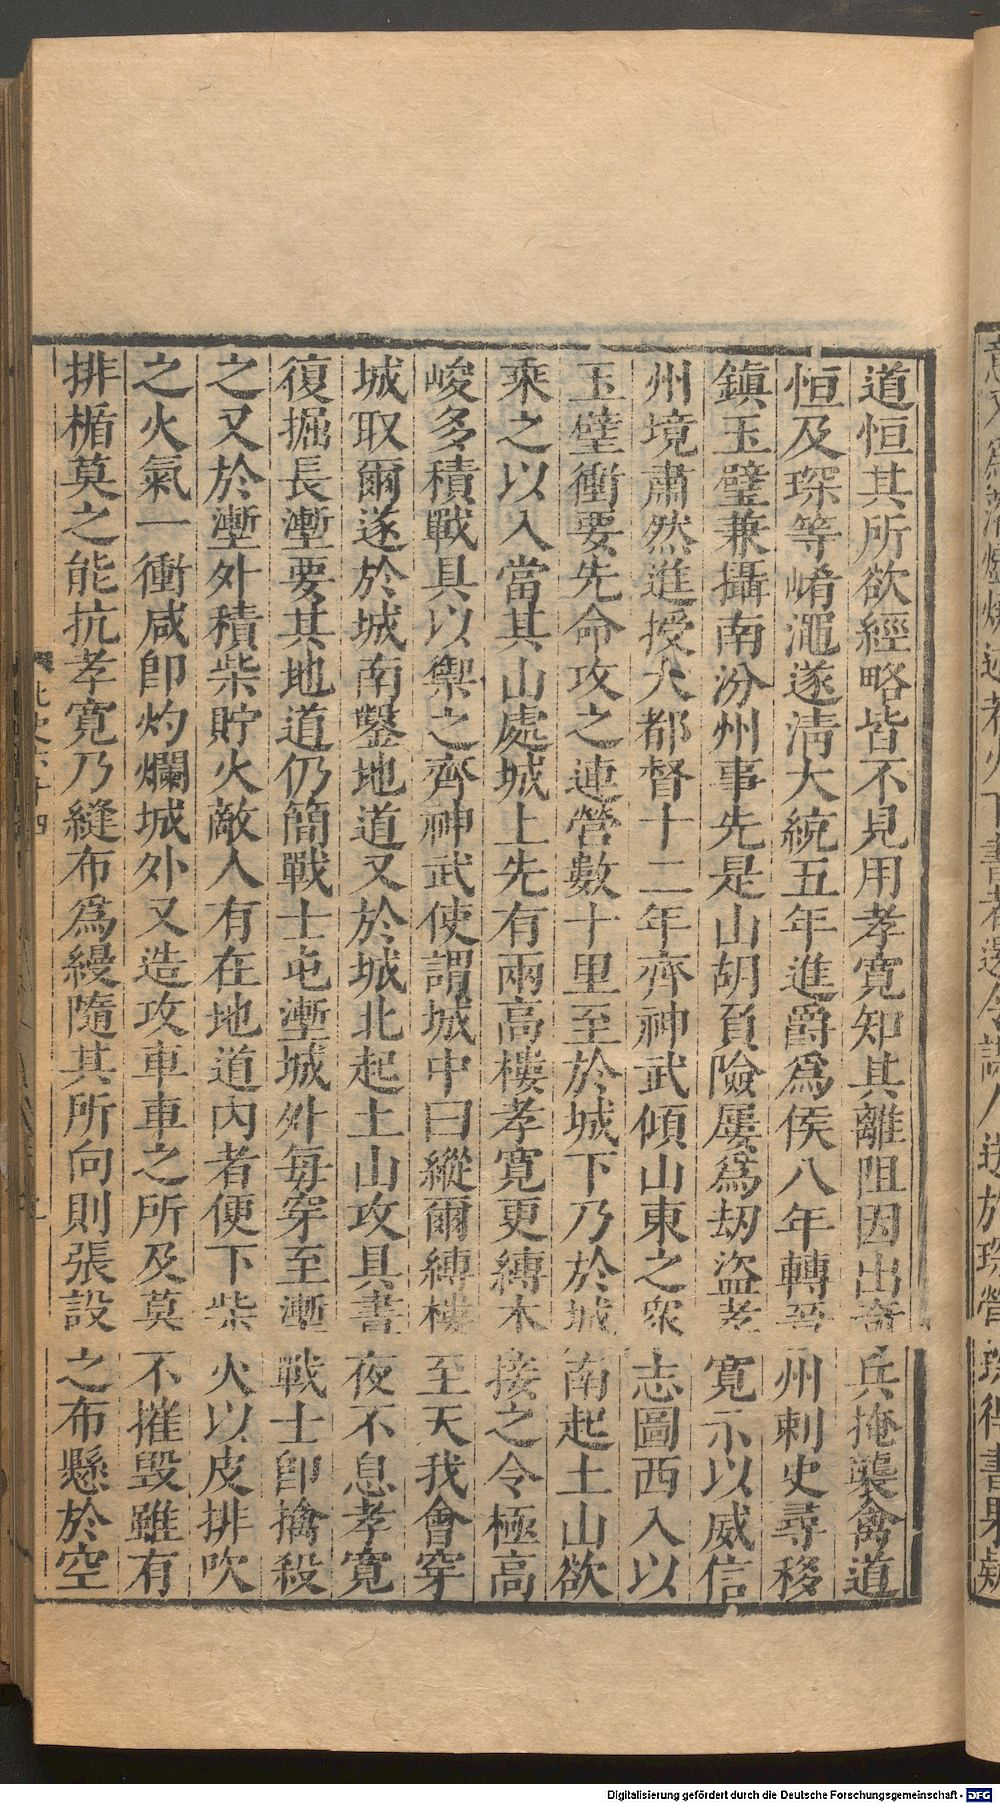 道恒其所欲經略皆不見用孝寬知其離阻因出奇兵掩襲禽道
恒及琛等崤澠遂清大統五年進爵爲侯八年轉晉州刺史尋移
鎮玉壁兼攝南汾州事先是山胡負險屢爲劫盜孝寬示以威信
州境肅然進授大都督十二年齊神武傾山東之衆志圖西入以
玉壁衝要先命攻之連營數十里至於城下乃於城南起土山欲
乘之以入當其山處城上先有兩高樓孝寬更縛木接之令極高
峻多積戰具以禦之齊神武使謂城中曰縱爾縛樓至天我會穿
城取爾遂於城南鑿地道又於城北起土山攻具晝夜不息孝寬
復掘長塹要其地道仍簡戰士屯塹城外每穿至塹戰士即擒殺
之又於塹外積柴貯火敵人有在地道內者便下柴火以皮排吹
之火氣一衝咸即灼爛城外又造攻車車之所及莫不摧毀雖有
排楯莫之能抗孝寬乃縫布爲縵隨其所向則張設之布懸於空
北史六十四
Digitalisierung gefördert durch die Deutsche Forschungsgemeinschaft - DFG